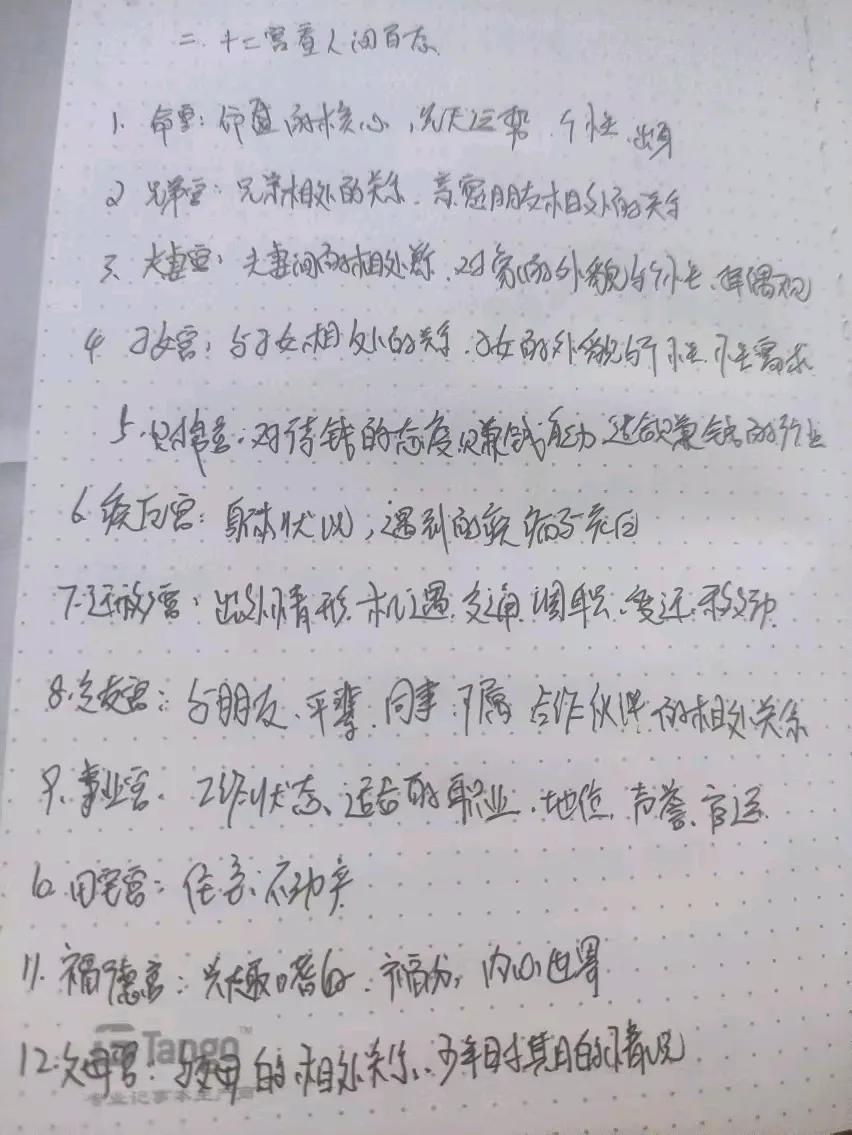 二、十二宫看人间百态
1. 命宫：命盘的核心，先天运势、个性、出身
2 兄弟宫：兄弟相处的关系、亲密朋友相处的关系
3、夫妻宫：夫妻间的相处关系、对象的外貌与个性、择偶观
4 子女宫：与子女相处的关系、子女的外貌与个性、性需求
5、财帛宫：对待钱的态度、赚钱能力、适合赚钱的行业
6 疾厄宫：身体状况，遇到的疾病与灾厄
7.迁移宫：出外情形、机遇、交通、调职、变迁、移动
8.交友宫：与朋友、平辈、同事、下属、合作伙伴的相处关系
9、事业宫：工作状态、适合的职业、地位、声誉、官运
10.田宅宫：住宅、不动产
11.福德宫：兴趣嗜好、福份、内心世界
12.父母宫：与父母的相处关系、少年时期的情况
Tango™
专业记事本生产商